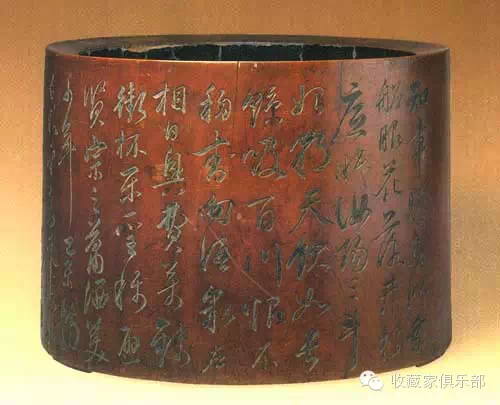 知章騎馬似乘
船眼花落井水
底眠汝陽三斗
始朝天飲如長
鯨吸百川恨不
移封向酒泉左
相日興費萬錢
銜杯樂聖稱避
賢宗之蕭洒美
少年
收藏家俱乐部